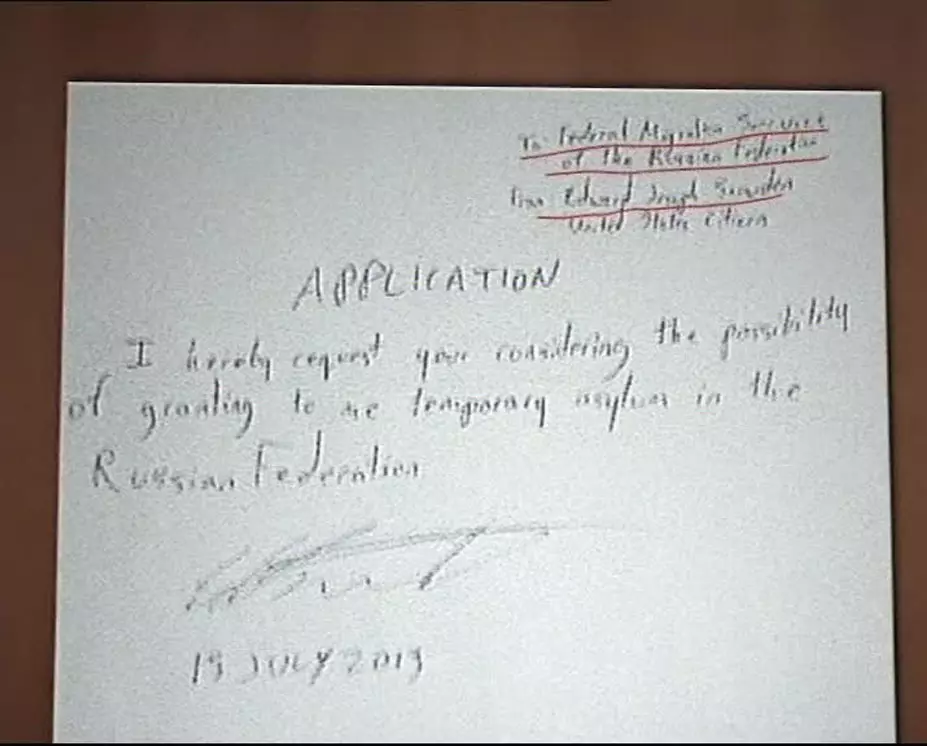 To: Federal Migration Service
of the Russian Federation
From: Edward Joseph Snowden
United States Citizen
APPLICATION
I hereby request your considering the possibility
of granting to me temporary asylum in the
Russian Federation
15 JULY 2013